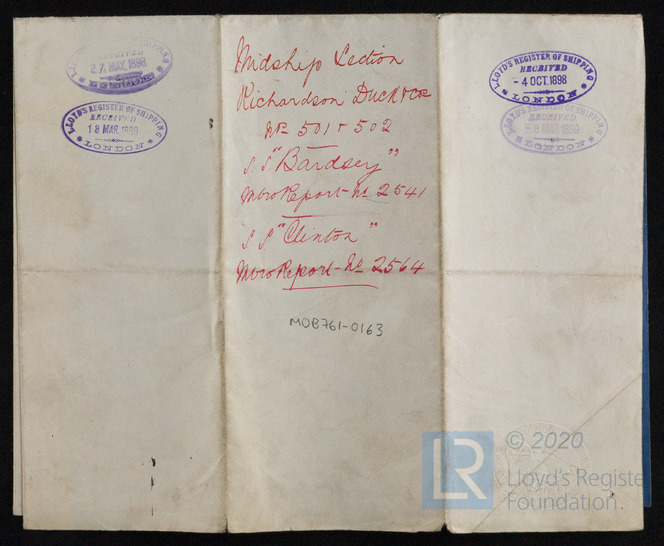 LLOYD'S REGISTER OF SHIPPING
RECEIVED
27 MAY.1898
LONDON
LLOYD'S REGISTER OF SHIPPING
RECEIVED
18 MAR.1899
LONDON
Midship Section
Richardson Duck & Co's
Nos 501 & 502
S S "Bardsey"
Mbro Report No 2541
S S "Clinton"
Mbro Report No 2564
MOB761-0163
LLOYD'S REGISTER OF SHIPPING
RECEIVED
-4 OCT.1898
LONDON
LLOYD'S REGISTER OF SHIPPING
RECEIVED
MAR.1899
LONDON
LR
© 2020
Lloyd's Registe
Foundation.